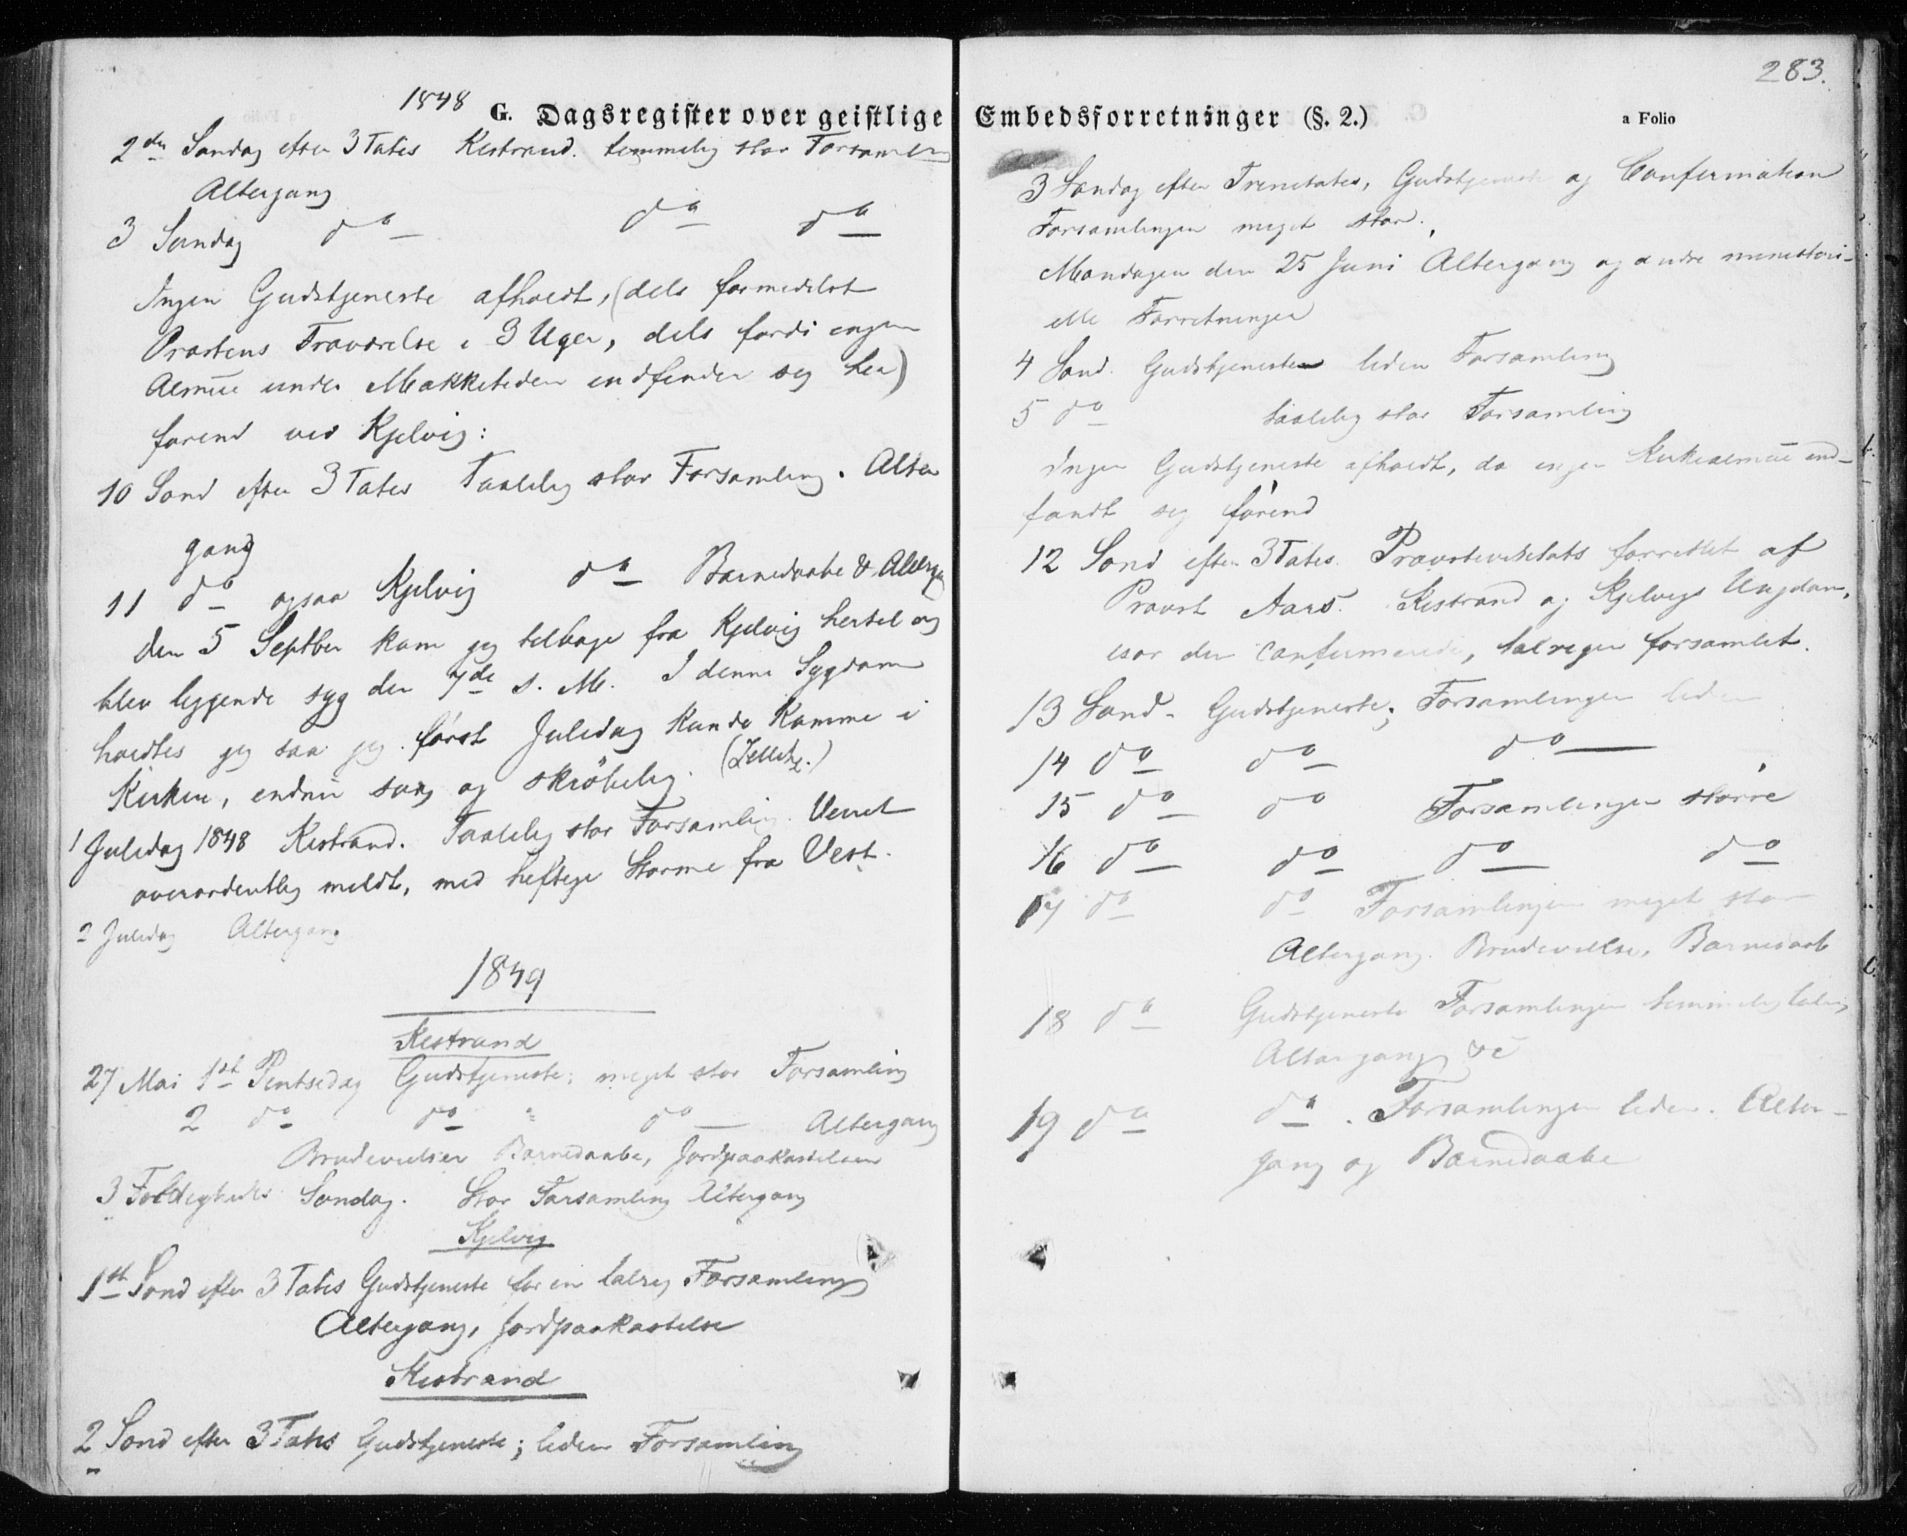 1848 G. Dagsregister over geistlige
2den Søndag efter 3Tatis Kistrand. temmelig stor Forsamling
Altergang
3 Søndag do do do
Ingen Gudstjeneste afholdt, (dels formedelst
Præstens Fraværelse i 3 Uger, dels fordi ingen
Almue under Makketiden indfinder sig her)
førend ved Kjelvig:
10 Sønd efter 3Tatis Taalelig stor Forsamling. Alter
gang
11 do ogsaa Kjelvig do Barnedaabe & Altergang
den 5 Septber kom jeg tilbage fra Kjelvig hertil og
blev liggende syg den 7de s. M. I denne Sygdom
holdtes jeg saa jeg først Juledag kunde komme i
Kirken, endnu svag og skrøbelig. (Zetlitz.)
1 Juledag 1848 Kistrand. Taalelig stor Forsamling. Veiret
overordentlig mildt, med heftige Storme fra Vest.
2 Juledag Altergang
1849
Kistrand
27 Mai 1st Pintsedag Gudstjeneste; meget stor Forsamling
2 do do " do Altergang
Brudevielser Barnedaabe, Jordpaakastelsen
3 Foldigheds Søndag. Stor Forsamling Altergang
Kjelvig
1st Sønd efter 3Tatis Gudstjeneste for en talrig Forsamling
Altergang, Jordpaakastelse
Kistrand
2 Sønd efter 3Tatis Gudstjeneste; liden Forsamling
283.
Embedsforretninger (§. 2.) a Folio
3 Søndag efter Trinitatis, Gudstjeneste og Confirmation
Forsamlingen meget stor.
Mandagen den 25 Juni Altergang og andre ministeri-
elle Forretninger
4 Sønd. Gudstjeneste liden Forsamling
5 do taalelig stor Forsamling
Ingen Gudstjeneste afholdt, da ingen Kirkealmue ind-
fandt sig førend
12 Sønd efter 3Tatis. Provstevisitats forrettet af
Provst Aars. Kistrand og Kjelvigs Ungdom,
især den confirmerede, talrigen forsamlet.
13 Sønd. Gudstjeneste; Forsamlingen liden
14 do do do
15 do do Forsamlingen større
16 do do do do
17 do do Forsamlingen meget stor
Altergang. Brudevielse. Barnedaab
18 do Gudstjeneste Forsamlingen temmelig talrig
Altergang &c
19 do do. Forsamlingen liden. Alter-
gang og Barnedaabe